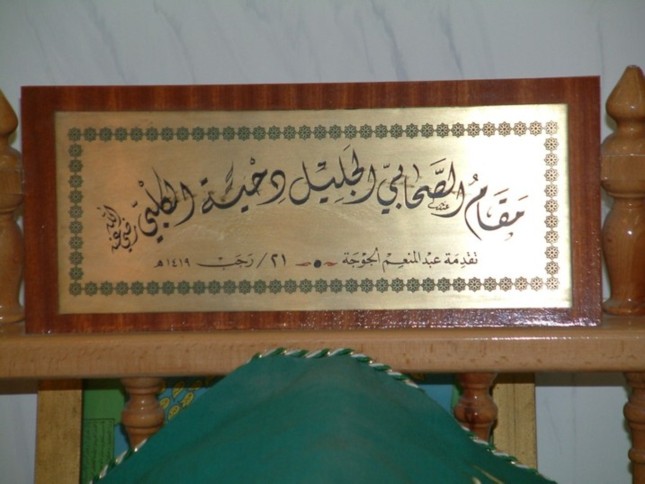 مَقَامُ الصَّحَابِيّ الجَلِيْل دِحْيَة الكَلْبِيّ رضي الله عنه
تقدمة عبد المنعم الجوجة ٢١/ رَجَبْ ١٤١٩ هـ